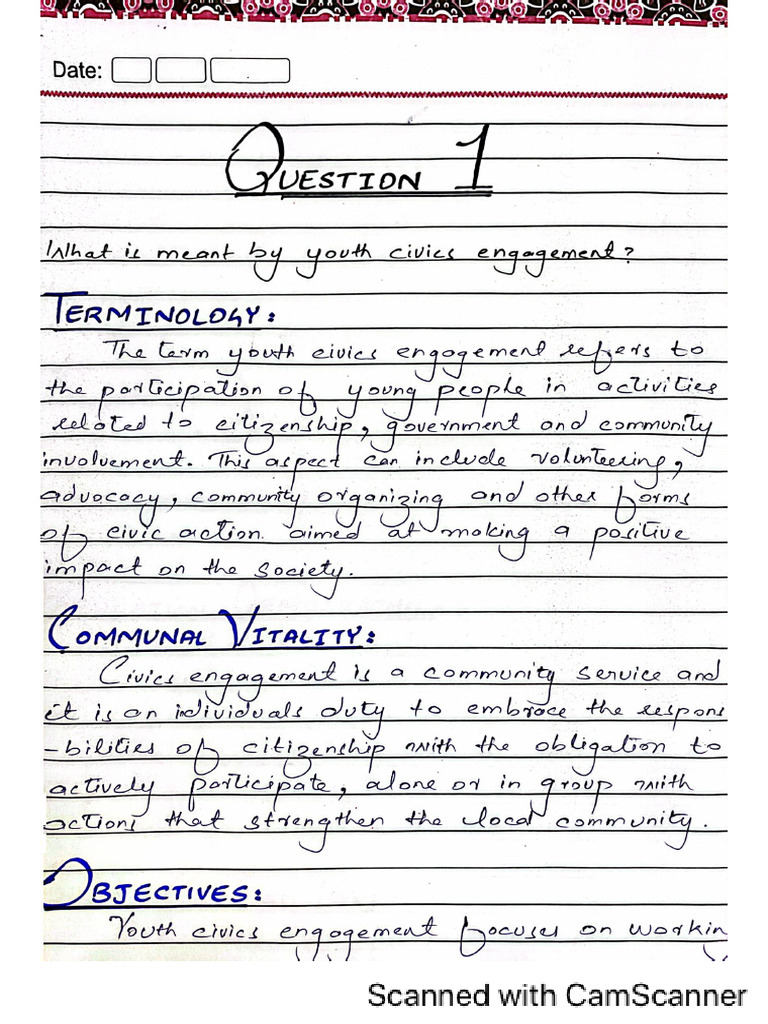 Date:
QUESTION 1
What is meant by youth civics engagement?
TERMINOLOGY:
The term youth civics engagement refers to
the participation of young people in activities
related to citizenship, government and community
involvement. This aspect can include volunteering,
advocacy, community organizing and other forms
of civic action aimed at making a positive
impact on the society.
COMMUNAL VITALITY:
Civics engagement is a community service and
it is an individuals duty to embrace the respons
-bilities of citizenship with the obligation to
actively participate, alone or in group with
actions that strengthen the local community.
OBJECTIVES:
Youth civics engagement focuses on workin
Scanned with CamScanner